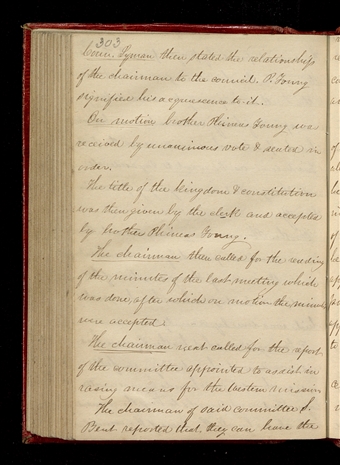 303
Coun. Lyman then stated the relationship
of the chairman to the council. P. Young
signified his acquiescence to it.
On motion brother Phineas Young was
received by unanimous vote & seated in
order.
The title of the Kingdom & constitution
was then given by the clerk and accepted
by brother Phineas Young.
The chairman then called for the reading
of the minutes of the last meeting which
was done, after which on motion the minutes
were accepted.
The chairman next called for the report
of the committee appointed to assist in
raising means for the Western mission
The chairman of said committee S.
Bent reported that they can have the